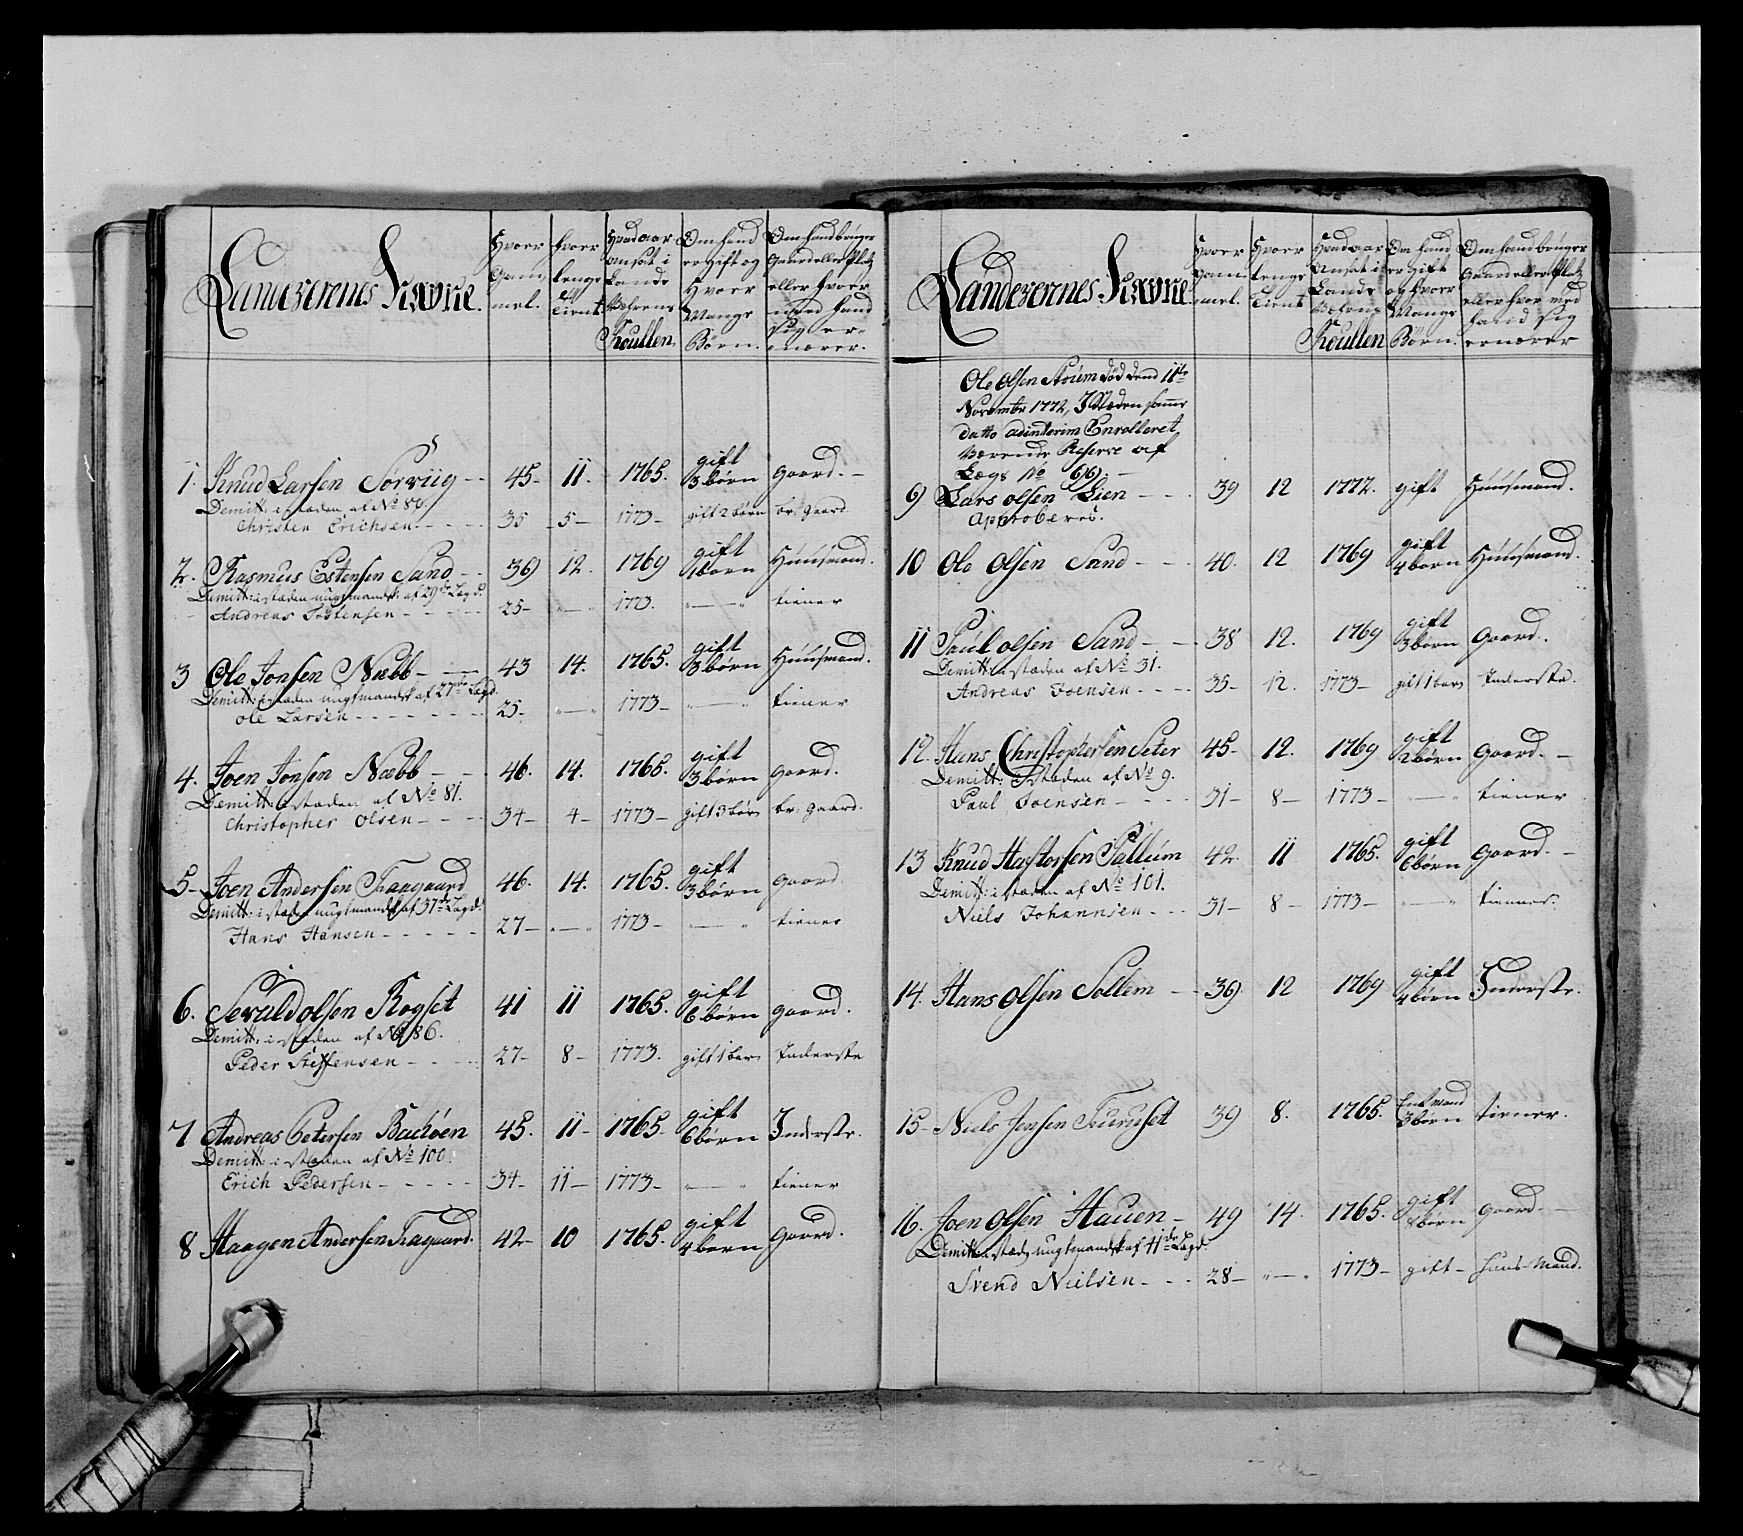 Landeværnes Navne.
Hvoer Gam mel.
Hvoer Lenge Tient
Hvad aar Ansat i Lande Væhrens Roullen
Om hand er gift og Hvoer Mange Börn.
Om hand brúger Gaard eller Platz eller hvor med hand sig er nærer.
1. Knud Larsen Sørviig -- 45- 11. 1765. gift 3 börn gaard. -
Demitt: i stæden af No 80.
Christen Erichsen - - - - 35 - 5 - 1773 - gift 2 börn br: gaard
2. Rasmus Estensen Sand - - 39 12. 1769 gift 1 born Húúsmand.
Demitt: i stæden ungtmandsk: af 29de Lægd.
Andreas Tostensen - - - - 25- „ — „ 1773. „ — „ tiener
3 Ole Jonsen Næbb - - 43 14. 1765. gift 3 börn Húúsmand.
Demitt: i stæden ungtmandsk af 27de Lægd.
Ole Larsen - - - - - - 25- „ — „ 1773 - „ — „ tiener
4. Joen Jonsen Næbb - - 46. 14. 1765. gift 3 börn gaard.
Demitt: i stæden af No 81.
Christopher Olsen - - - 34- 4- 1773- gift 3 börn br: gaard.
5- Joen Andersen Fraagaard 46. 14. 1765. gift 3 börn gaard
Demitt: i stæden ungtmandsk af 37de Lægd:
Hans Hansen - - - - - 27- „ — „ 1773 - „ — „ tiener
6. Sevald olsen Rogset 41 11 1765. gift 6 börn gaard.
Demitt: i stæden af No 86.
Peder Steffensen - - - - 27- 8- 1773. gift 1 barn Inderste
7 Andreas Petersen Bachöen 45. 11- 1765- gift 6 börn Inderste.
Demitt: i stæden af No 100.
Erich Pedersen - - - - - 34- 11- 1773- „ — „ tiener
8 Haagen Andersen Fragaard. 42- 10 1765. gift 4 born gaard.
Landevernes Navne.
Hvoer Gam mel.
Hvoer Lenge Tient
Hvad aar Ansat i Lande Væhrens Roullen
Om hand er gift og hvoer Mange Börn.
Om hand brúger Gaard eller Platz eller hvor med hand sig ernærer
Ole Olsen Stoúm död dend 11te
Novembr 1772, I Stæden samme
datto adinterim Enrolleret
værende Reserve af
Lægs No 66. -
9) Lars olsen Lien - - - 39 12 1772. gift Húúsmand.
Approberes.
10 Ole Olsen Sand - - - 40. 12 1769 gift 4 born Húúsmand.
11 Paul olsen Sand - - 38 12. 1769 gift 3 börn gaard.
Demitt: i stæden af No 31.
Andreas Joensen - - - - 35- 12. 1773- gift 1 barn Inderste.
12. Hans Christophersen Seter 45- 12. 1769 gift 2 börn gaard. -
Demitt: I stæden af No 9.
Paul Joensen - - - - 31- 8- 1773- „ — „ tiener
13 Knud Hastorsen Sallúm 42. 11 1765. gift 6 börn gaard. -
Demitt: i stæden af No 101.
Niels Johannsen - - - 31- 8- 1773- „ — „ tienner.
14. Hans Olsen Sollem - - 39. 12 1769 gift 4 börn Inderste.
15- Niels Jensen Fúrúset 39 8. 1765. Enkmand 3 börn tiener.
16. Joen Olsen Haúen - 49 14. 1765. gift börn gaard. -
Demitt: i stæd: ungtmandsk af 41de Lægd.
Svend Nielsen - - - 28- „ — „ 1773- gift - Huus-Mand.